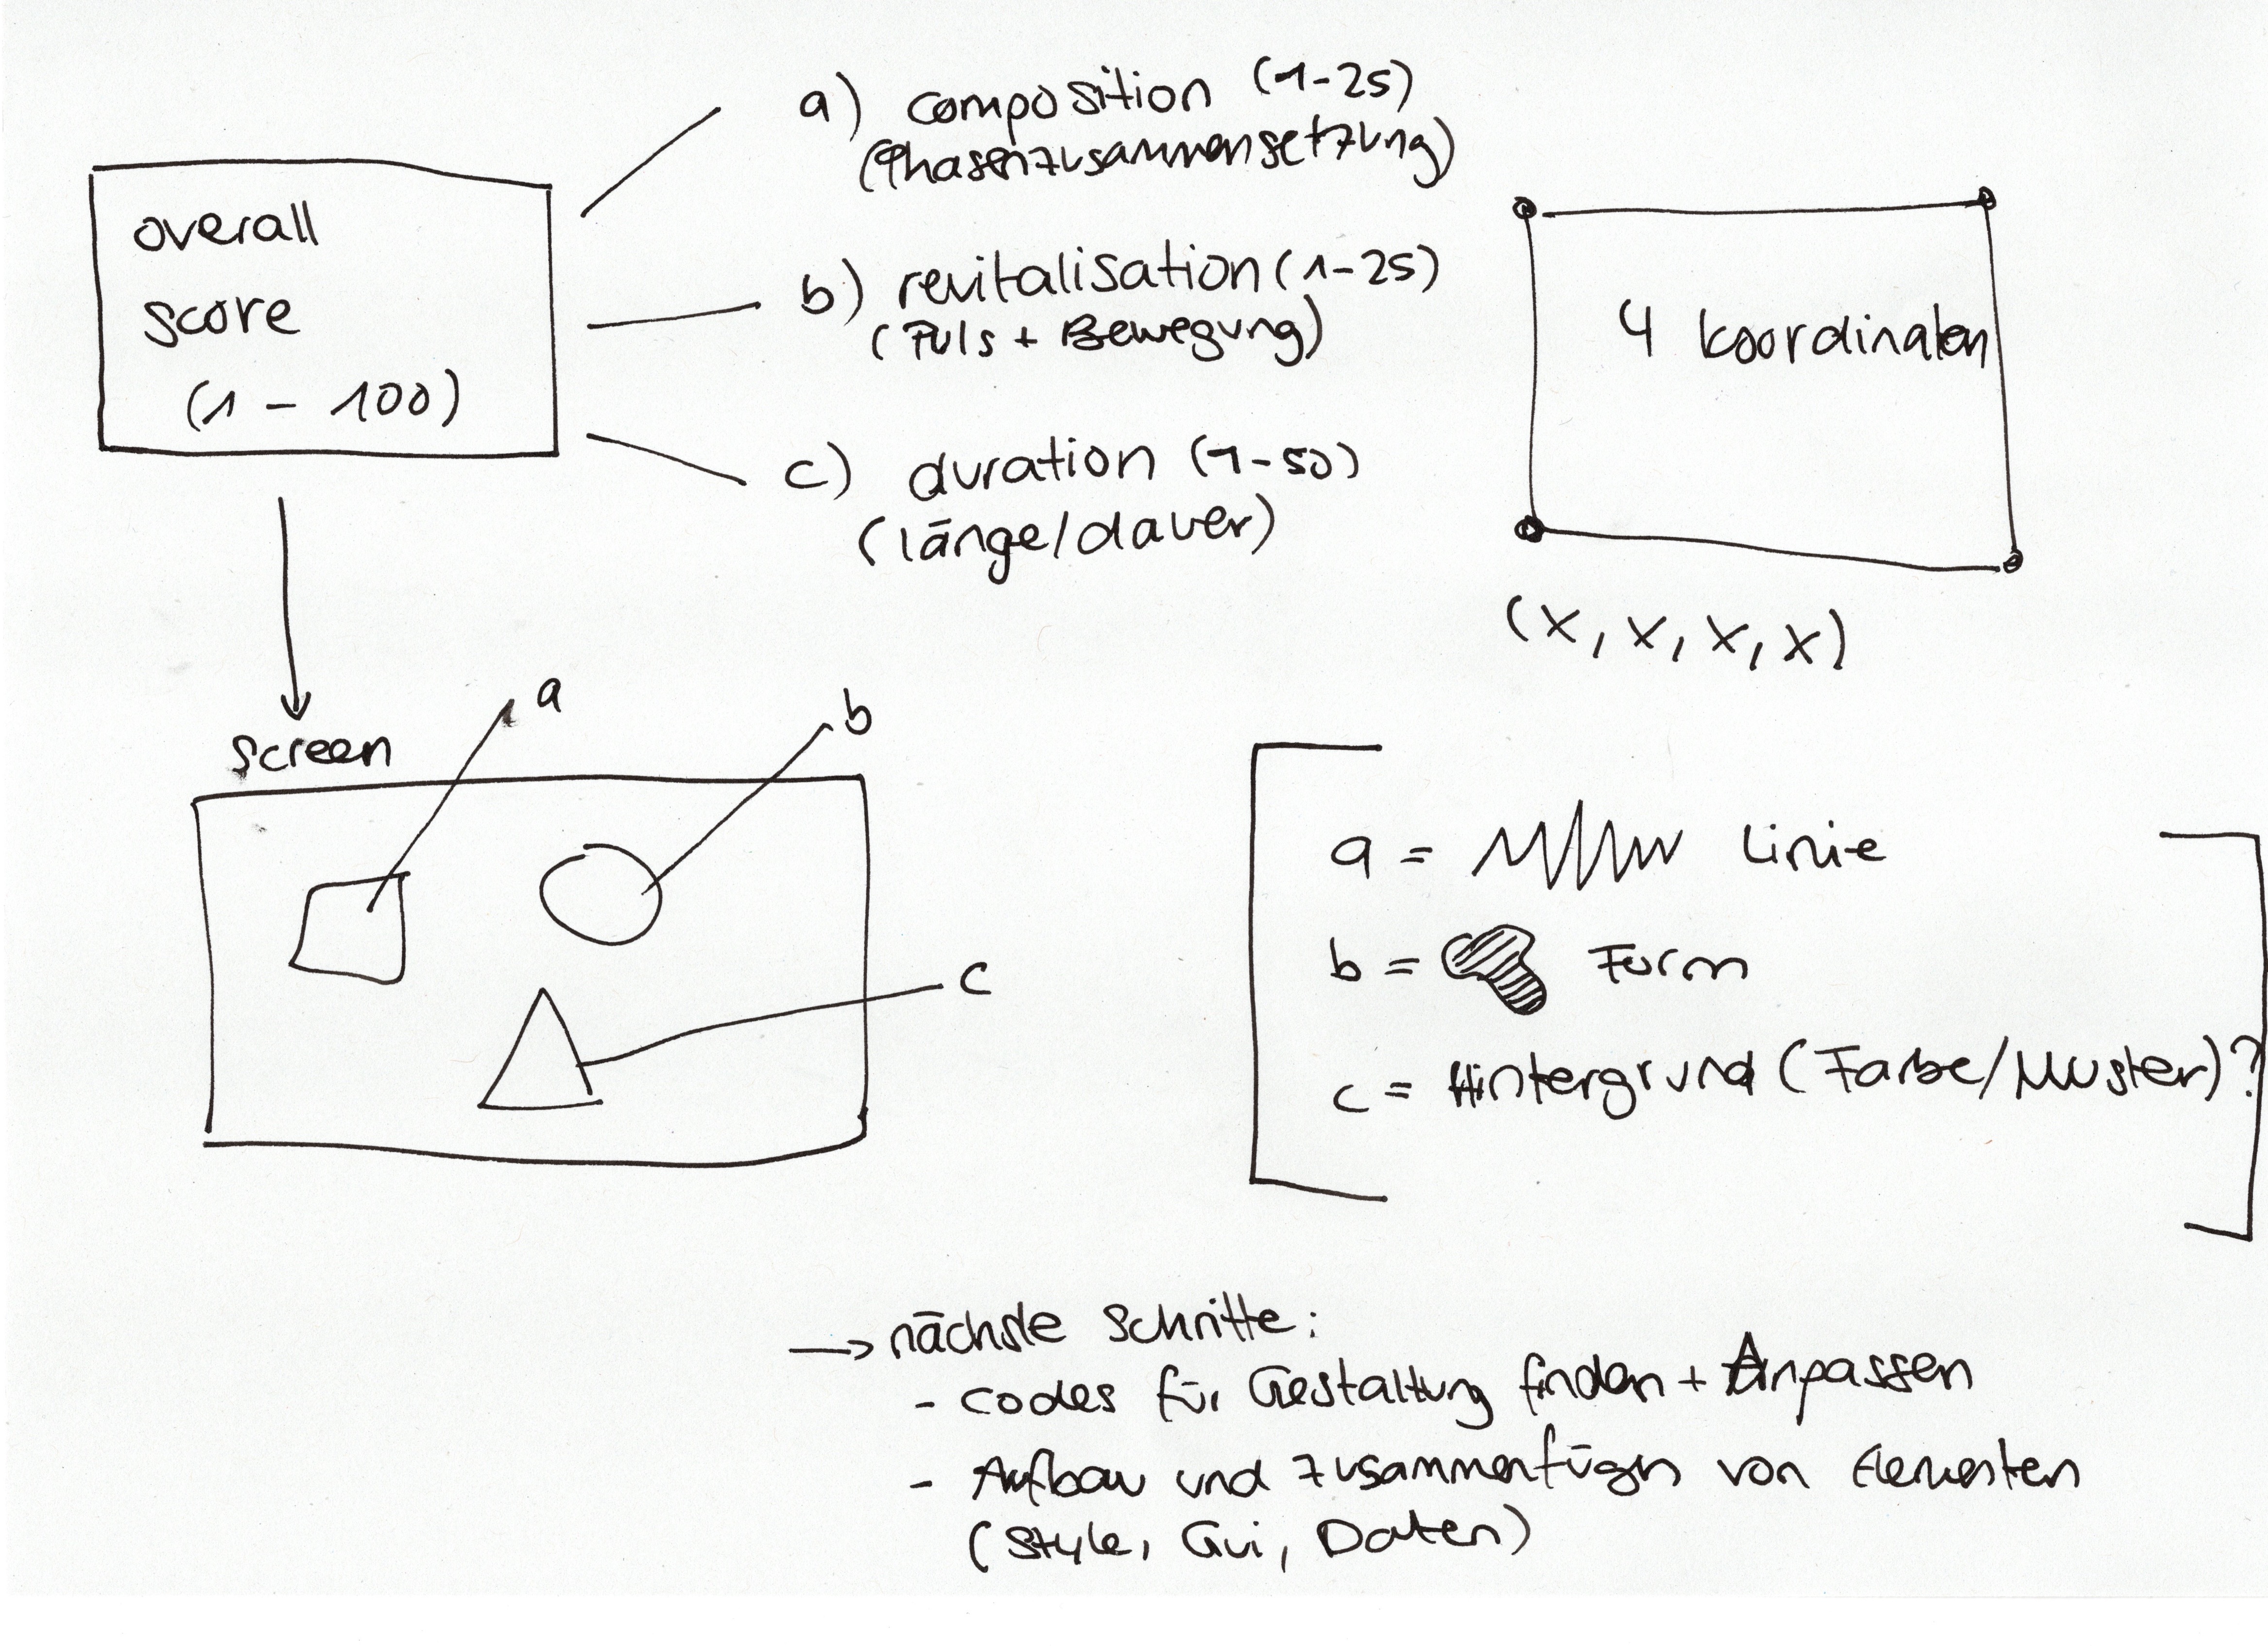 overall
score
(1 - 100)
a) composition (1-25)
(Phasenzusammensetzung)
b) revitalisation (1-25)
(Puls + Bewegung)
c) duration (1-50)
(länge/dauer)
4 koordinaten
(x, x, x, x)
screen
a
b
c
a = Linie
b = Form
c = Hintergrund (Farbe/Muster)?
→ nächste Schritte:
- codes für Gestaltung finden + Anpassen
- Aufbau und zusammenfügen von Elementen
(Style, Gui, Daten)